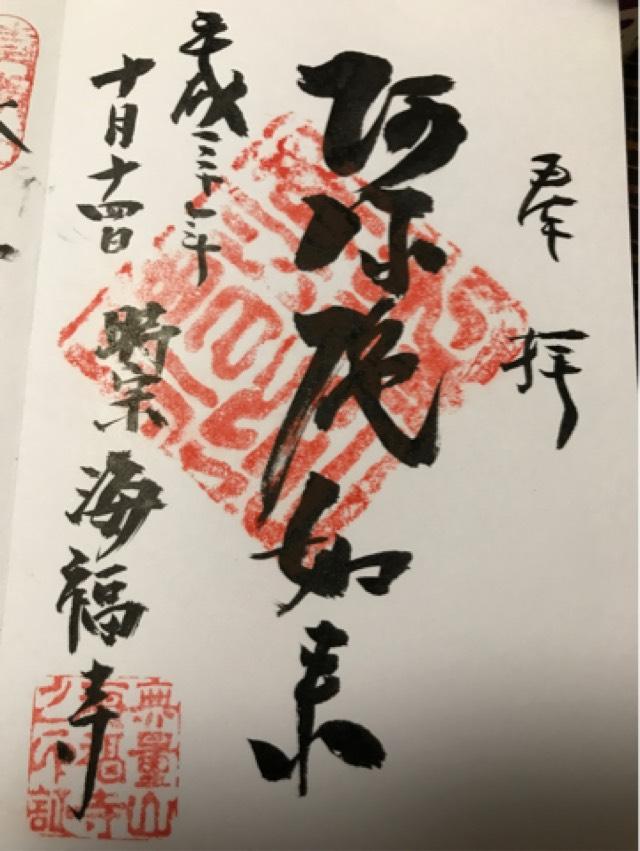 奉拝
阿弥陀如来
平成三十一年
十月十四日
時宗 海福寺
無量山
海福寺
之印証